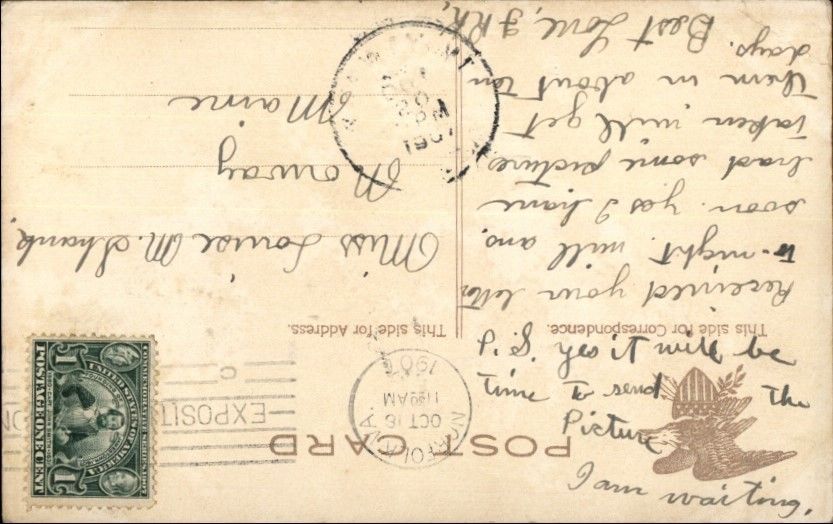 POST CARD
This side for Correspondence.
This side for Address.
Received your letter
to-night. will ans.
soon. yes I have
had some pictures
taken, will get
them in about ten
days.
Best Love,
P.S. Yes it will be
time to send the
Picture
I am waiting.
Miss Louise M. Shank,
Norway
Maine
NORFOLK
OCT 16
AM
EXPOSITION
1907
UNITED STATES OF AMERICA
POSTAGE ONE CENT
1 1